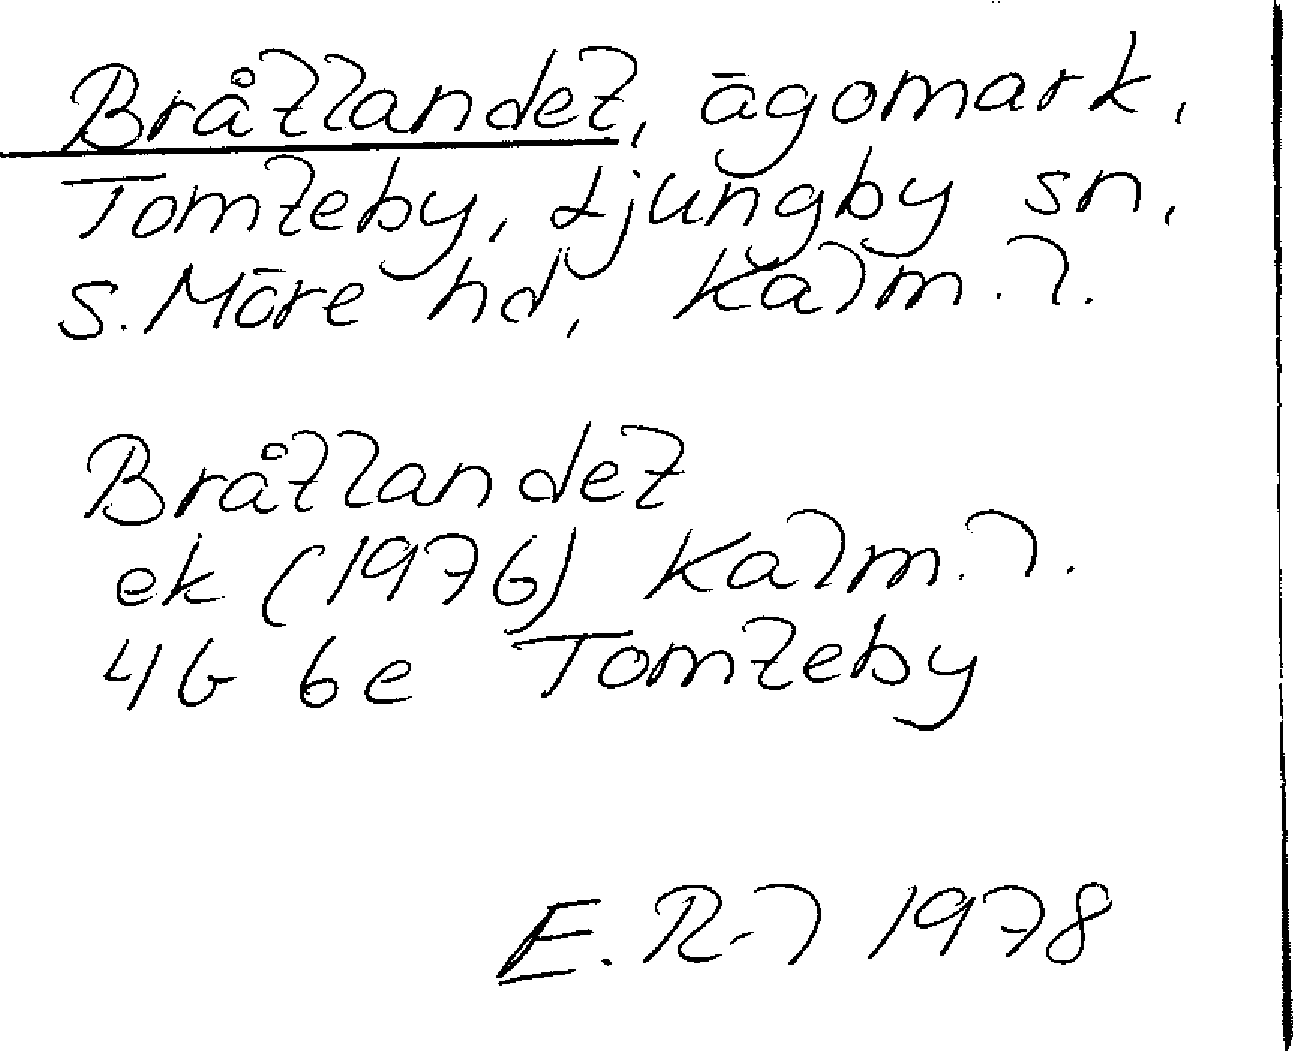 Bråtlandet, ägomark,
Tomteby, Ljungby sn,
S. Möre hd, Kalm. l.
Bråtlandet
ek (1976) Kalm. l.
4G 6e Tomteby
E. R-l 1978